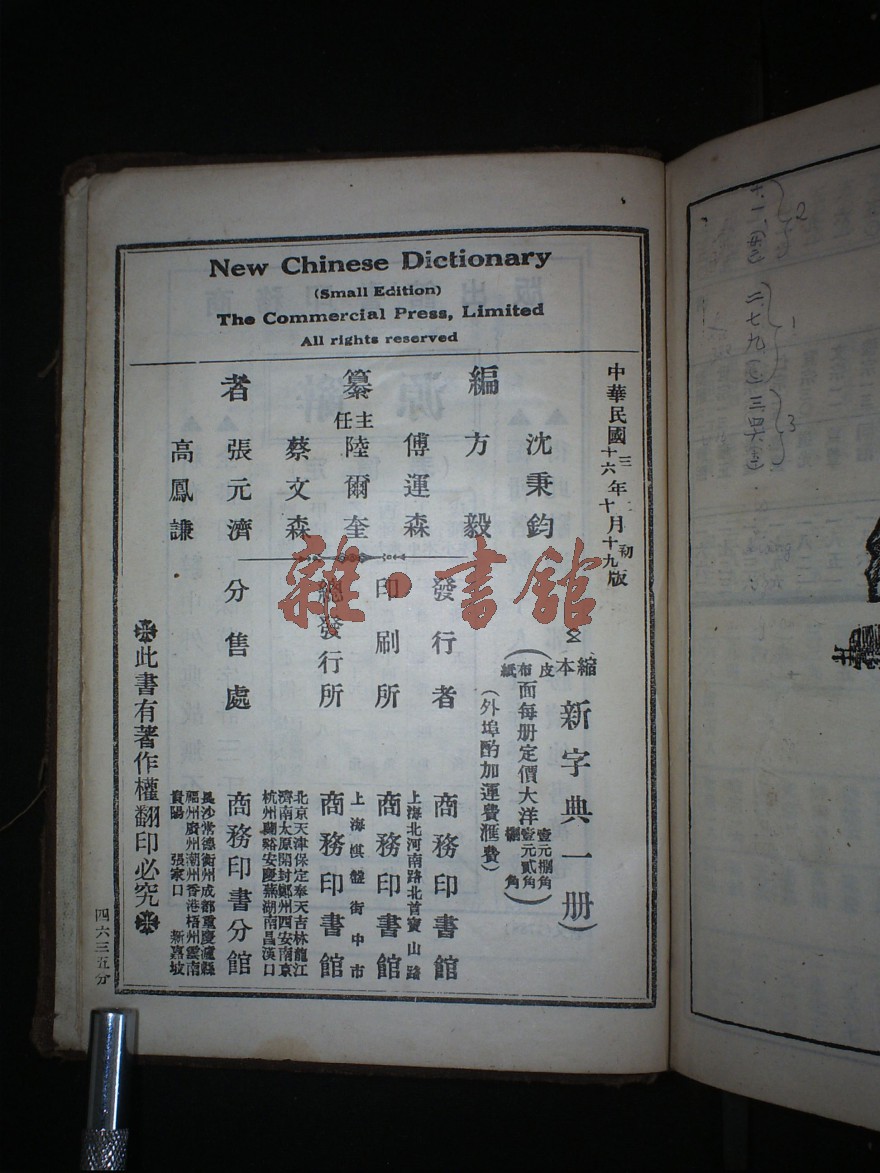 New Chinese Dictionary
(Small Edition)
The Commercial Press, Limited
All rights reserved
中華民國三年十月初版
十六年十月十九版
(縮本新字典一册)
(皮布紙面每册定價大洋壹元捌角壹元貳角捌角)
(外埠酌加運費滙費)
編纂者
沈秉鈞
方毅
傅運森
主任
陸爾奎
蔡文森
張元濟
高鳳謙
發行者
商務印書館
上海北河南路北首寶山路
印刷所
商務印書館
上海棋盤街中市
總發行所
商務印書館
北京天津保定奉天吉林龍江
濟南太原開封鄭州西安南京
杭州蘭谿安慶蕪湖南昌漢口
分售處
商務印書分館
長沙常德衡州成都重慶瀘縣
福州廣州潮州香港梧州雲南
貴陽 張家口 新嘉坡
此書有著作權翻印必究
四六三五分
雜·書館